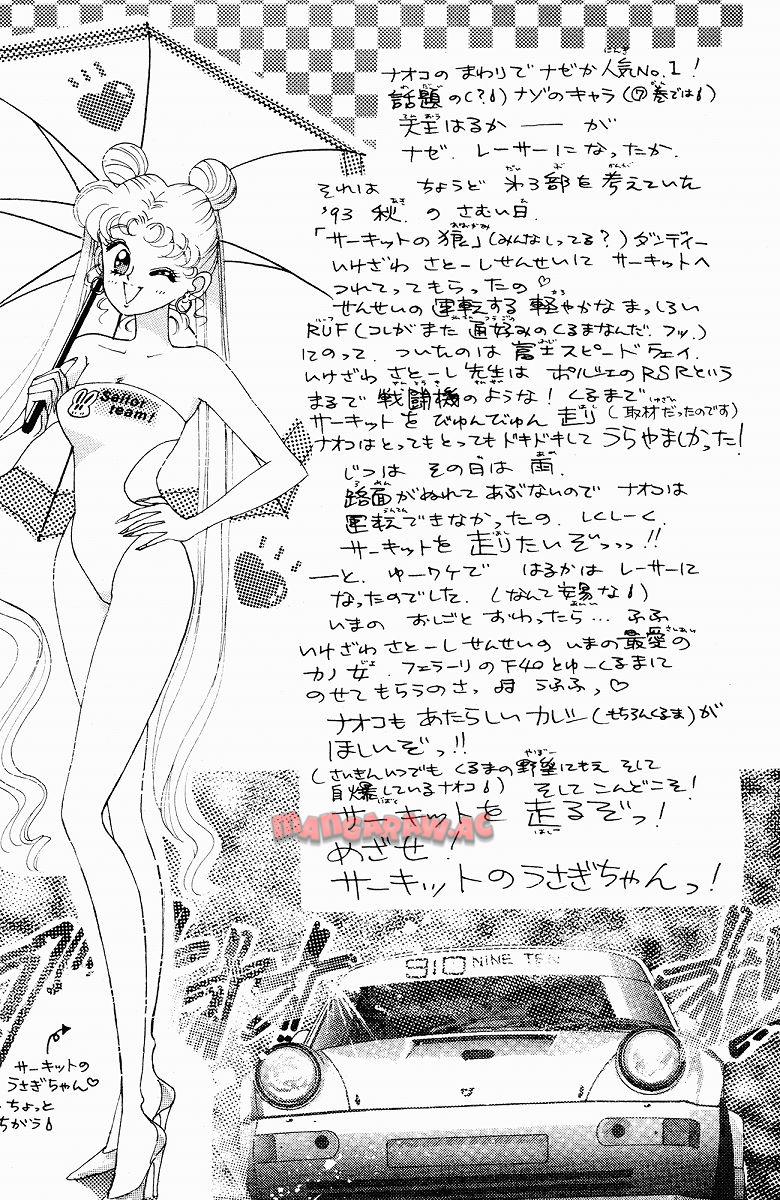 ナオコの まわりで ナゼか人気No.1!
話題の(?!)ナゾのキャラ(⑦巻では!)
天王はるか ―― が
ナゼ. レーサーになったか.
それは ちょうど 第3部を考えていた
'93 秋. の さむい日.
「サーキットの狼」(みんなしってる?)ダンディー
いけざわ さとーしせんせいに サーキットへ
つれてってもらったの♡
せんせいの運転する軽やかな まっしろい
RUF(コレがまた 通好みのくるまなんだ.フッ.)
にのって. ついたのは 富士スピードウェイ.
いけざわ さとーし先生は ポルシェのRSRという
まるで戦闘機のような! くるまで
サーキットを びゅんびゅん 走り(取材だったのです)
ナオコはとってもとってもドキドキして うらやましかった!
じつは その日は 雨.
路面がぬれて あぶないので ナオコは
運転できなかったの. しくしーく.
サーキットを 走りたいぞっっっ!!
―と. ゆーワケで はるかは レーサーに
なったのでした. (なんて安易な!)
いまの おしごと おわったら… ふふ
いけざわ さとーしせんせいの いまの最愛の
カノ女. フェラーリの F40とゆーくるまに
のせてもらうのさっ ♫ うふふっ♡
ナオコも あたらしいカレシ(もちろんくるま)が
ほしいぞっ!!
(さいきんいつでも くるまの野望にもえ そして
自爆しているナオコ!) そして こんどこそ!
サーキットを 走るぞっ!
めざせ!
サーキットのうさぎちゃんっ!
Sailor
team!
サーキットの
うさぎちゃん♡
ちょっと
ちがう!
910 NINE TEN
MANGARAW.AC